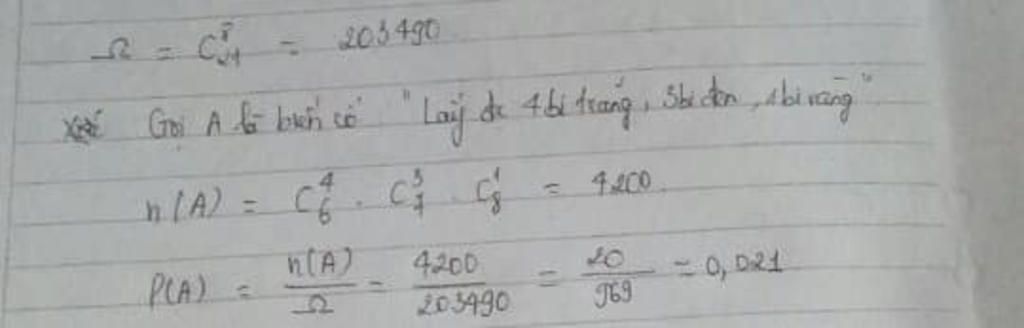 Ω = C⁸₂₁ = 203490
Gọi A là biến cố "Lấy đc 4 bi trắng, 3 bi đen, 1 bi vàng"
n(A) = C⁴₆ . C³₇ . C¹₈ = 4200
P(A) = n(A)/Ω = 4200/203490 = 20/969 = 0,021